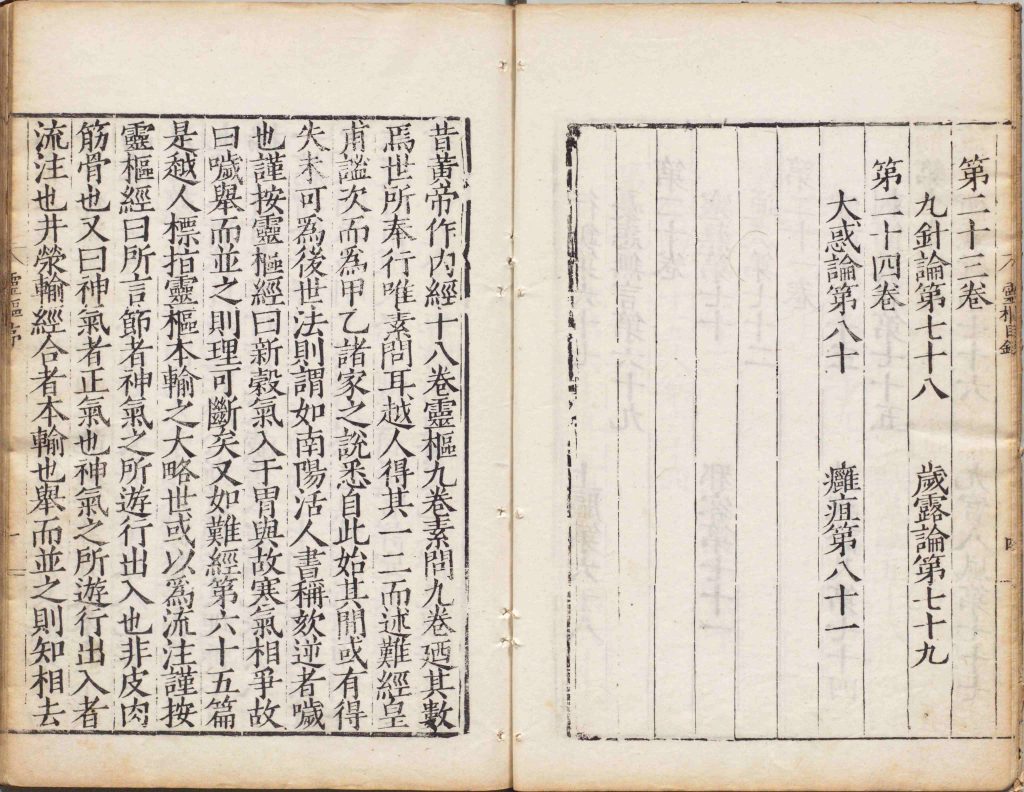 靈樞目錄
四
第二十三卷
九針論第七十八　歲露論第七十九
第二十四卷
大惑論第八十　癰疽第八十一
昔黃帝作內經十八卷靈樞九卷素問九卷廼其數
焉世所奉行唯素問耳越人得其一二而述難經皇
甫謐次而爲甲乙諸家之說悉自此始其間或有得
失未可爲後世法則謂如南陽活人書稱欬逆者噦
也謹按靈樞經曰新穀氣入于胃與故寒氣相爭故
曰噦舉而並之則理可斷矣又如難經第六十五篇
是越人標指靈樞本輸之大略世或以爲流注謹按
靈樞經曰所言節者神氣之所遊行出入也非皮肉
筋骨也又曰神氣者正氣也神氣之所遊行出入者
流注也井滎輸經合者本輸也舉而並之則知相去
靈樞序
一